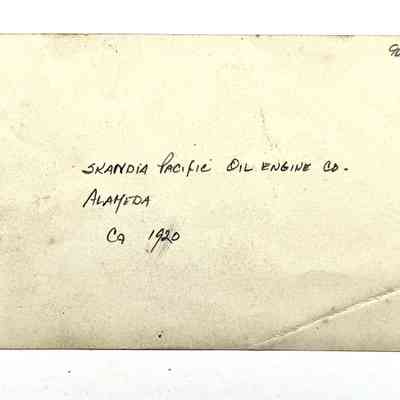 SKANDIA PACIFIC OIL ENGINE CO.
ALAMEDA
Ca 1920